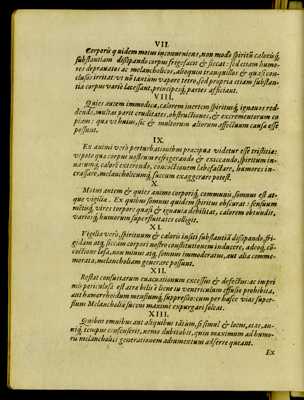 VII.
Corporis quidem motus inconueniens, non modò spiritũ calorisq́;
substantiam dissipando corpus frigefacit & siccat: sed etiam humo-
res deprauatos ac melancholicos, alioquin tranquillos & quasi con-
clusos irritat: vt nõ tantùm vapore tetro, sed propria etiam substan-
tia corpus variè lacessant, principesq́; partes afficiant.
VIII.
Quies autem immodica, calorem inertem spiritumq́; ignauos red-
dendo, multas parit cruditates, obstructiones, & excrementorum co
piam: quæ vt huius, sic & multorum aliorum affectuum causa esse
possunt.
IX.
Ex animi verò perturbationibus præcipua videtur esse tristitia:
vtpote qua corpus nostrum refrigerando & exiccando, spiritum in-
natumq́; calorē exterendo, concoctionem labefactare, humores in-
crassare, melancholicumq́; succum exaggerare potest.
X.
Motus autem & quies animo corporiq́; communis, somnus est at-
que vigilia. Ex quibus somnus quidem spiritus obscurat: sensuum
motusq́; vires torpore quasi & ignauia debilitat, calorem obtundit,
variosq́; humorum superfluitates colligit.
XI.
Vigilia verò, spirituum & caloris insiti substantiã dissipando, fri-
gidam atq́; siccam corpori nostro constitutionem inducere, adeoq́; cõ-
coctione læsa, non minus atq́; somnus immoderatus, aut alia comme-
morata, melancholiam generare possunt.
XII.
Restat consuetarum euacuationum excessus & defectus: ac impri
mis periculosa est atra bilis è liene in ventriculum effusio prohibita,
aut hæmorrhoidum mensiumq́; suppressio: cum per hasce vias super-
fluus Melancholiæ succus maximè expurgari soleat.
XIII.
Quibus omnibus aut aliquibus tãtùm, si simul & locus, ætas, an-
niq́; tempus consenserit, nemo dubitabit, quin maximum ad humo-
ris melancholici generationem adiumentum adferre queant.
Ex